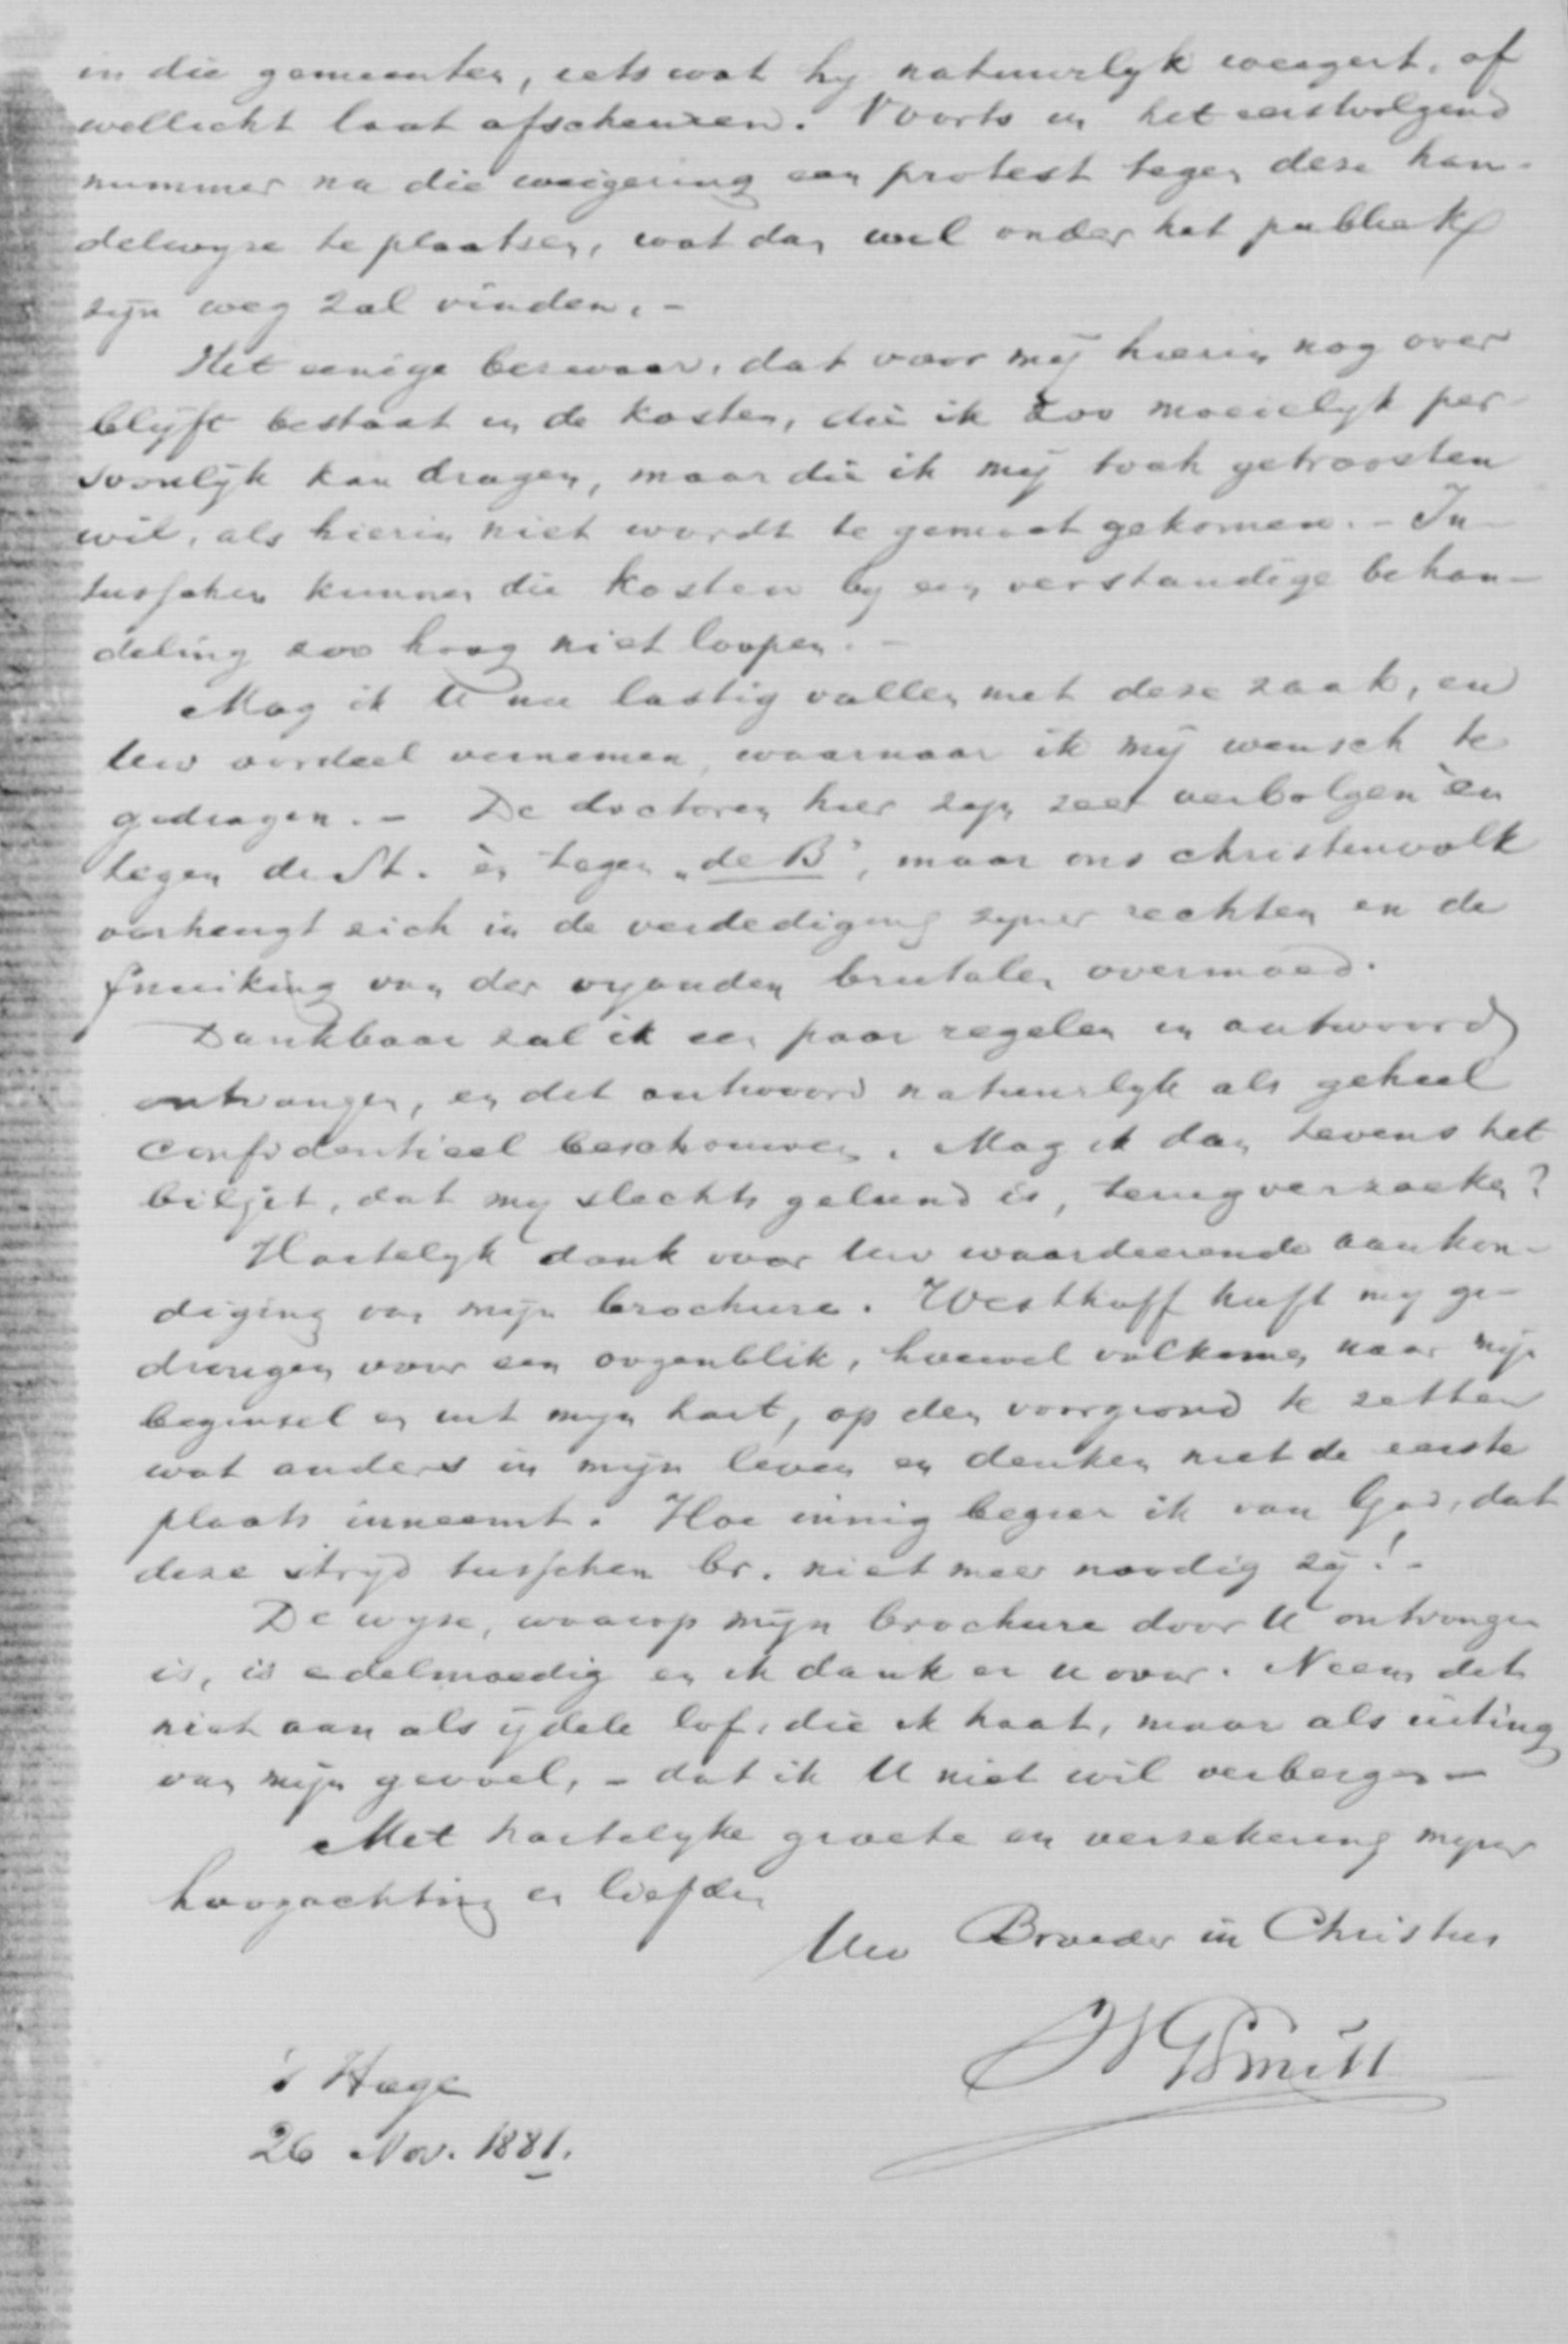 in die gemeenten, iets wat hy natuurlyk weigert, of
wellicht laat afscheuren. Voorts in het eerstvolgend
nummer na die weigering een protest tegen deze han-
delwyze te plaatsen, wat dan wel onder het publiek
zijn weg zal vinden. -
Het eenige bezwaar, dat voor mij hierin nog over
blyft bestaat in de kosten, die ik zoo moeielyk per-
soonlijk kan dragen, maar die ik mij toch getroosten
wil, als hierin niet wordt te gemoet gekomen. - In-
tusschen kunnen die kosten by een verstandige behan-
deling zoo hoog niet loopen. -
Mag ik U nu lastig vallen met deze zaak, en
Uw oordeel vernemen, waarnaar ik mij wensch te
gedragen. - De doctoren hier zyn zeer verbolgen èn
tegen de St. èn tegen „de B", maar ons christenvolk
verheugt zich in de verdediging zyner rechten en de
fnuiking van der vyanden brutalen overmoed.
Dankbaar zal ik een paar regelen in antwoord
ontvangen, en dit antwoord natuurlyk als geheel
confidentieel beschouwen. Mag ik dan tevens het
biljet, dat my slechts geleend is, terugverzoeken?
Hartelyk dank voor Uw waardeerende aankon-
diging van mijn brochure. Westhoff heeft my ge-
drongen voor een oogenblik, hoewel volkomen naar mijn
beginsel en uit myn hart, op den voorgrond te zetten
wat anders in mijn leven en denken niet de eerste
plaats inneemt. Hoe innig begeer ik van God, dat
deze stryd tusschen br. niet meer noodig zij! -
De wyze, waarop mijn brochure door U ontvangen
is, is edelmoedig en ik dank er U voor. Neem dit
niet aan als ijdele lof, die ik haat, maar als uiting
van mijn gevoel, - dat ik U niet wil verbergen -
Met hartelyke groete en verzekering myner
hoogachting en liefde,
Uw Broeder in Christus
HGSmitt
's Hage
26 Nov. 1881.